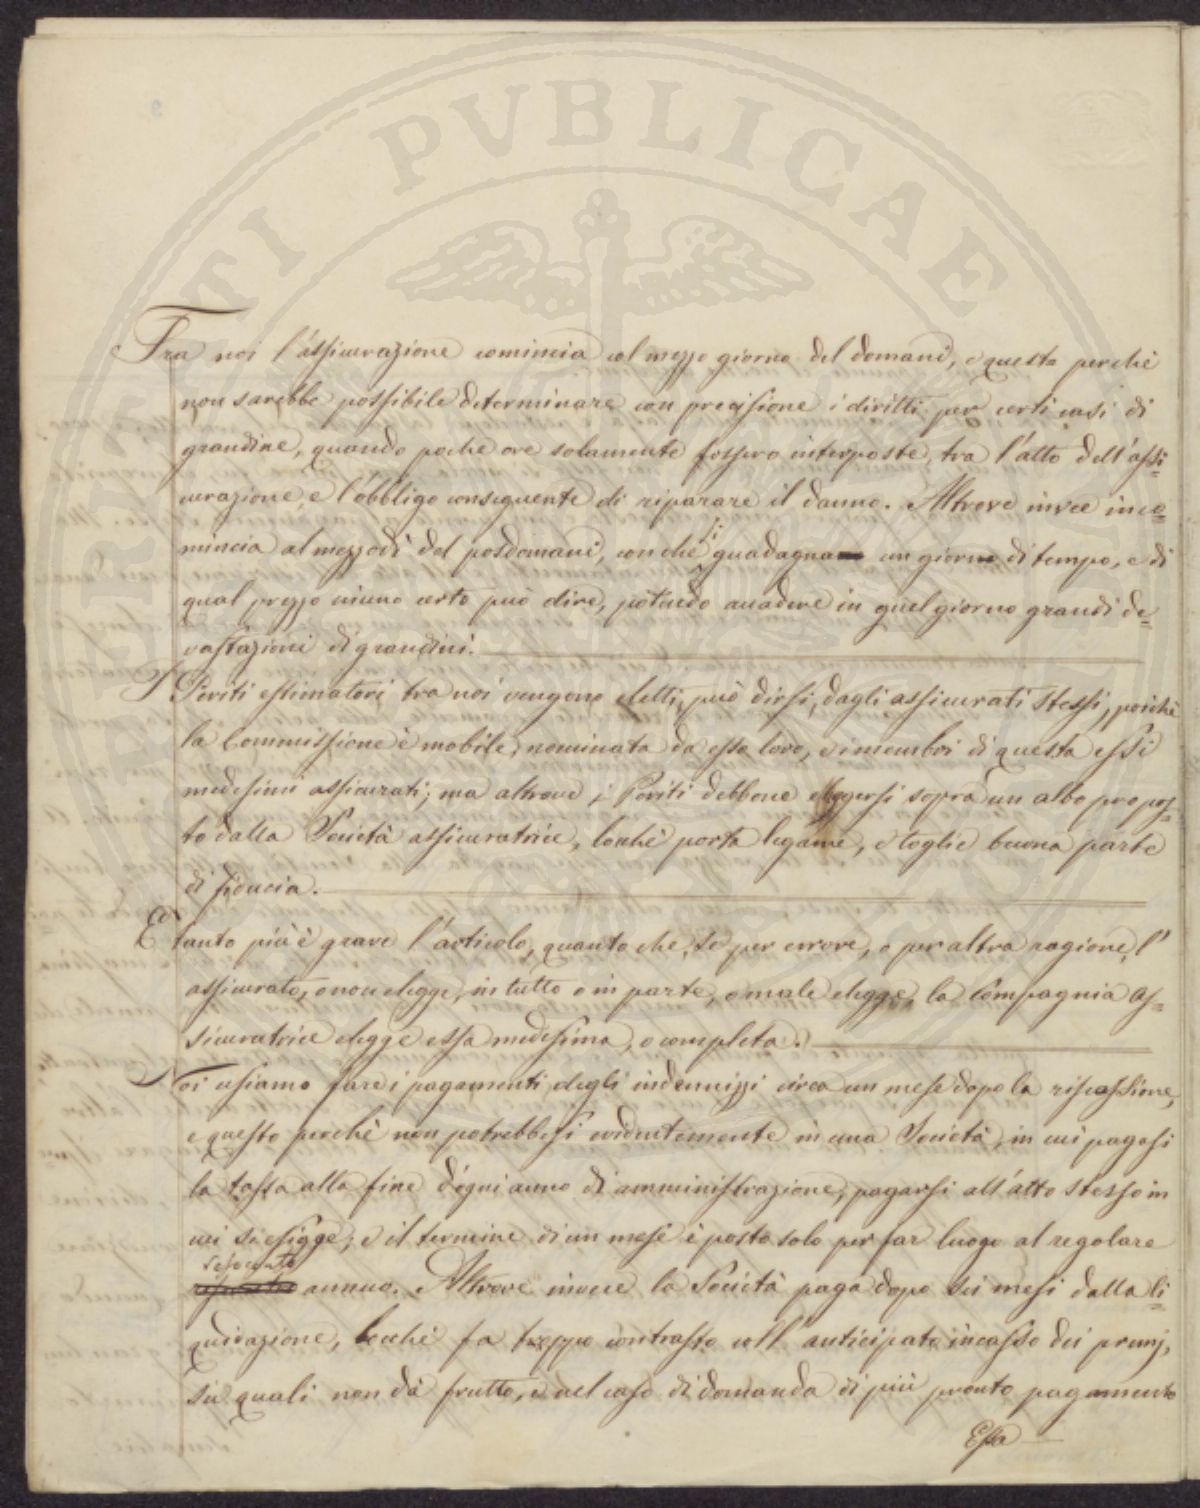 PERITATI PUBLICAE
Tra noi l'assicurazione comincia col mezzo giorno del domani, e questo perchè
non sarebbe possibile determinare con precisione i diritti per certi casi di
grandine, quando poche ore solamente fossero interposte, tra l'atto dell'assi=
curazione, e l'obbligo conseguente di riparare il danno. Altrove invece inco=
mincia al mezzodì del posdomani, con che si guadagna un giorno di tempo, e di
qual prezzo niuno certo può dire, potendo accadere in quel giorno grandi de=
vastazioni di grandini.
I Periti estimatori tra noi vengono eletti, può dirsi, dagli assicurati stessi, poichè
la Commissione è mobile, nominata da esso loro, e i membri di questa essi
medesimi assicurati; ma altrove i Periti debbono eleggersi sopra un albo propos=
to dalla Società assicuratrice, locchè porta legame, e toglie buona parte
di fiducia.
E tanto più è grave l'articolo, quanto che, se per errore, o per altra ragione, l'
assicurato, o non elegge, in tutto o in parte, o male elegge, la Compagnia as=
sicuratrice elegge essa medesima, o completa.
Noi usiamo fare i pagamenti degli indennizzi circa un mese dopo la riscossione,
e questo perchè non potrebbesi evidentemente in una Società, in cui pagasi
la tassa alla fine d'ogni anno di amministrazione, pagarsi all'atto stesso in
cui si esigge; e il termine di un mese è posto solo per far luogo al regolare
resoconto
annuo. Altrove invece la Società paga dopo sei mesi dalla li=
quidazione, locchè fa troppo contrasto coll'anticipato incasso dei premj,
su quali non dà frutto, e nel caso di domanda di più pronto pagamento
Essa